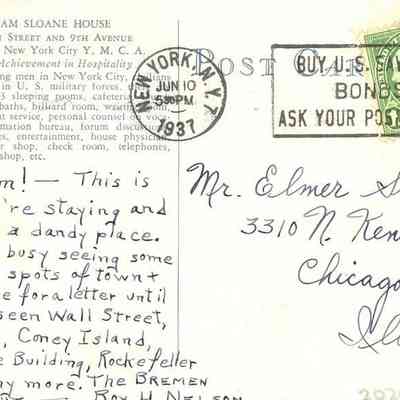 AM SLOANE HOUSE
STREET AND 9TH AVENUE
New York City Y. M. C. A.
Achievement in Hospitality
ng men in New York City, civilians
in U. S. military forces, u
3 sleeping rooms, cafeteria
baths, billiard room, writing
nt service, personal counsel on voca
ormation bureau, forum discussions
es, entertainment, house physician
er shop, check room, telephones,
shop, etc.
POST CAR
NEW YORK, N.Y.
JUN 10
5 30 PM
1937
BUY U.S. SAV
BONDS
ASK YOUR POST
m! — This is
're staying and
a dandy place.
busy seeing some
spots of town +
e for a letter until
seen Wall Street,
, Coney Island,
e Building, Rockefeller
ny more. The BREMEN
Roy H. Nelson
Mr. Elmer S
3310 N. Ken
Chicago
Ill